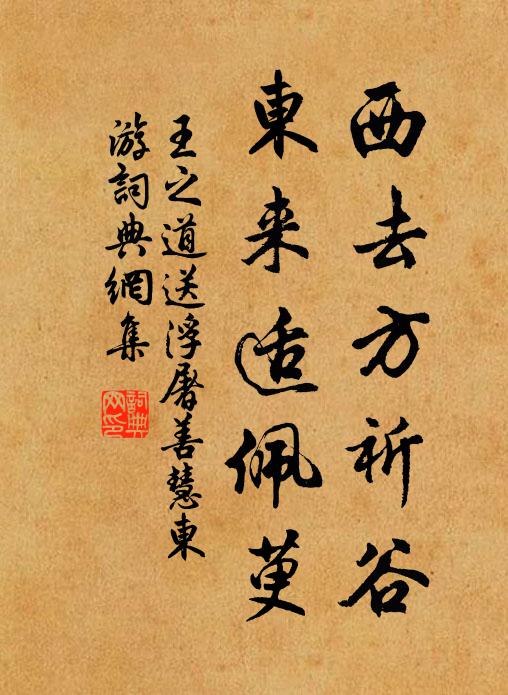 西去方祈谷
東来适佩萸
王之道送浮屠善慧東
游詞典網集
詞典網印